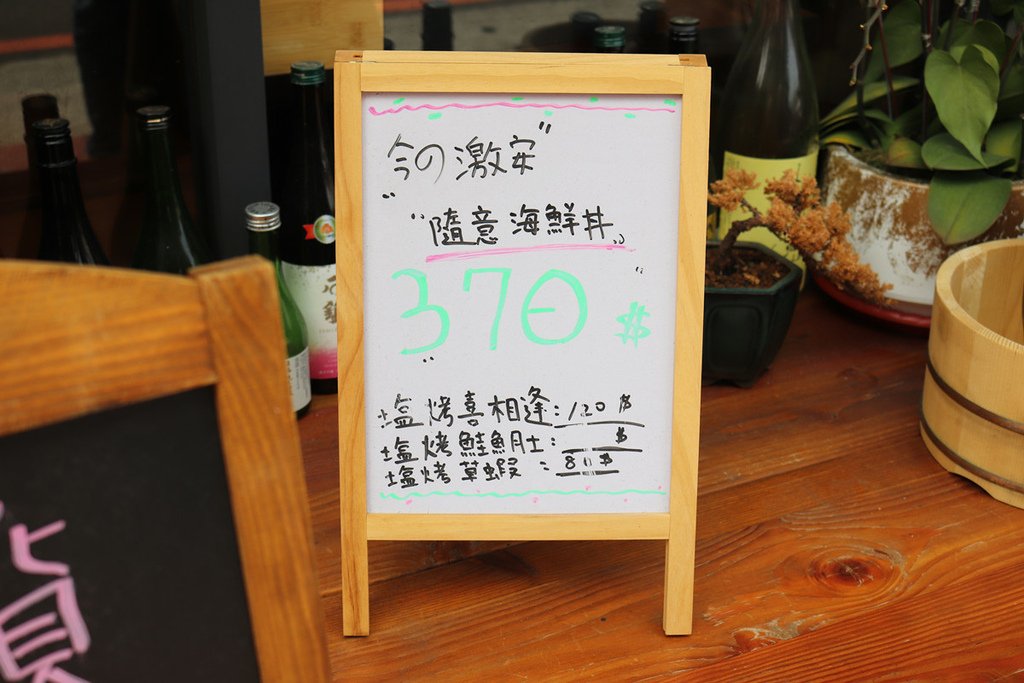 今の激安
"隨意海鮮丼"
370 $
塩烤喜相逢:120 $
塩烤鮭魚肚: $
塩烤草蝦:80$